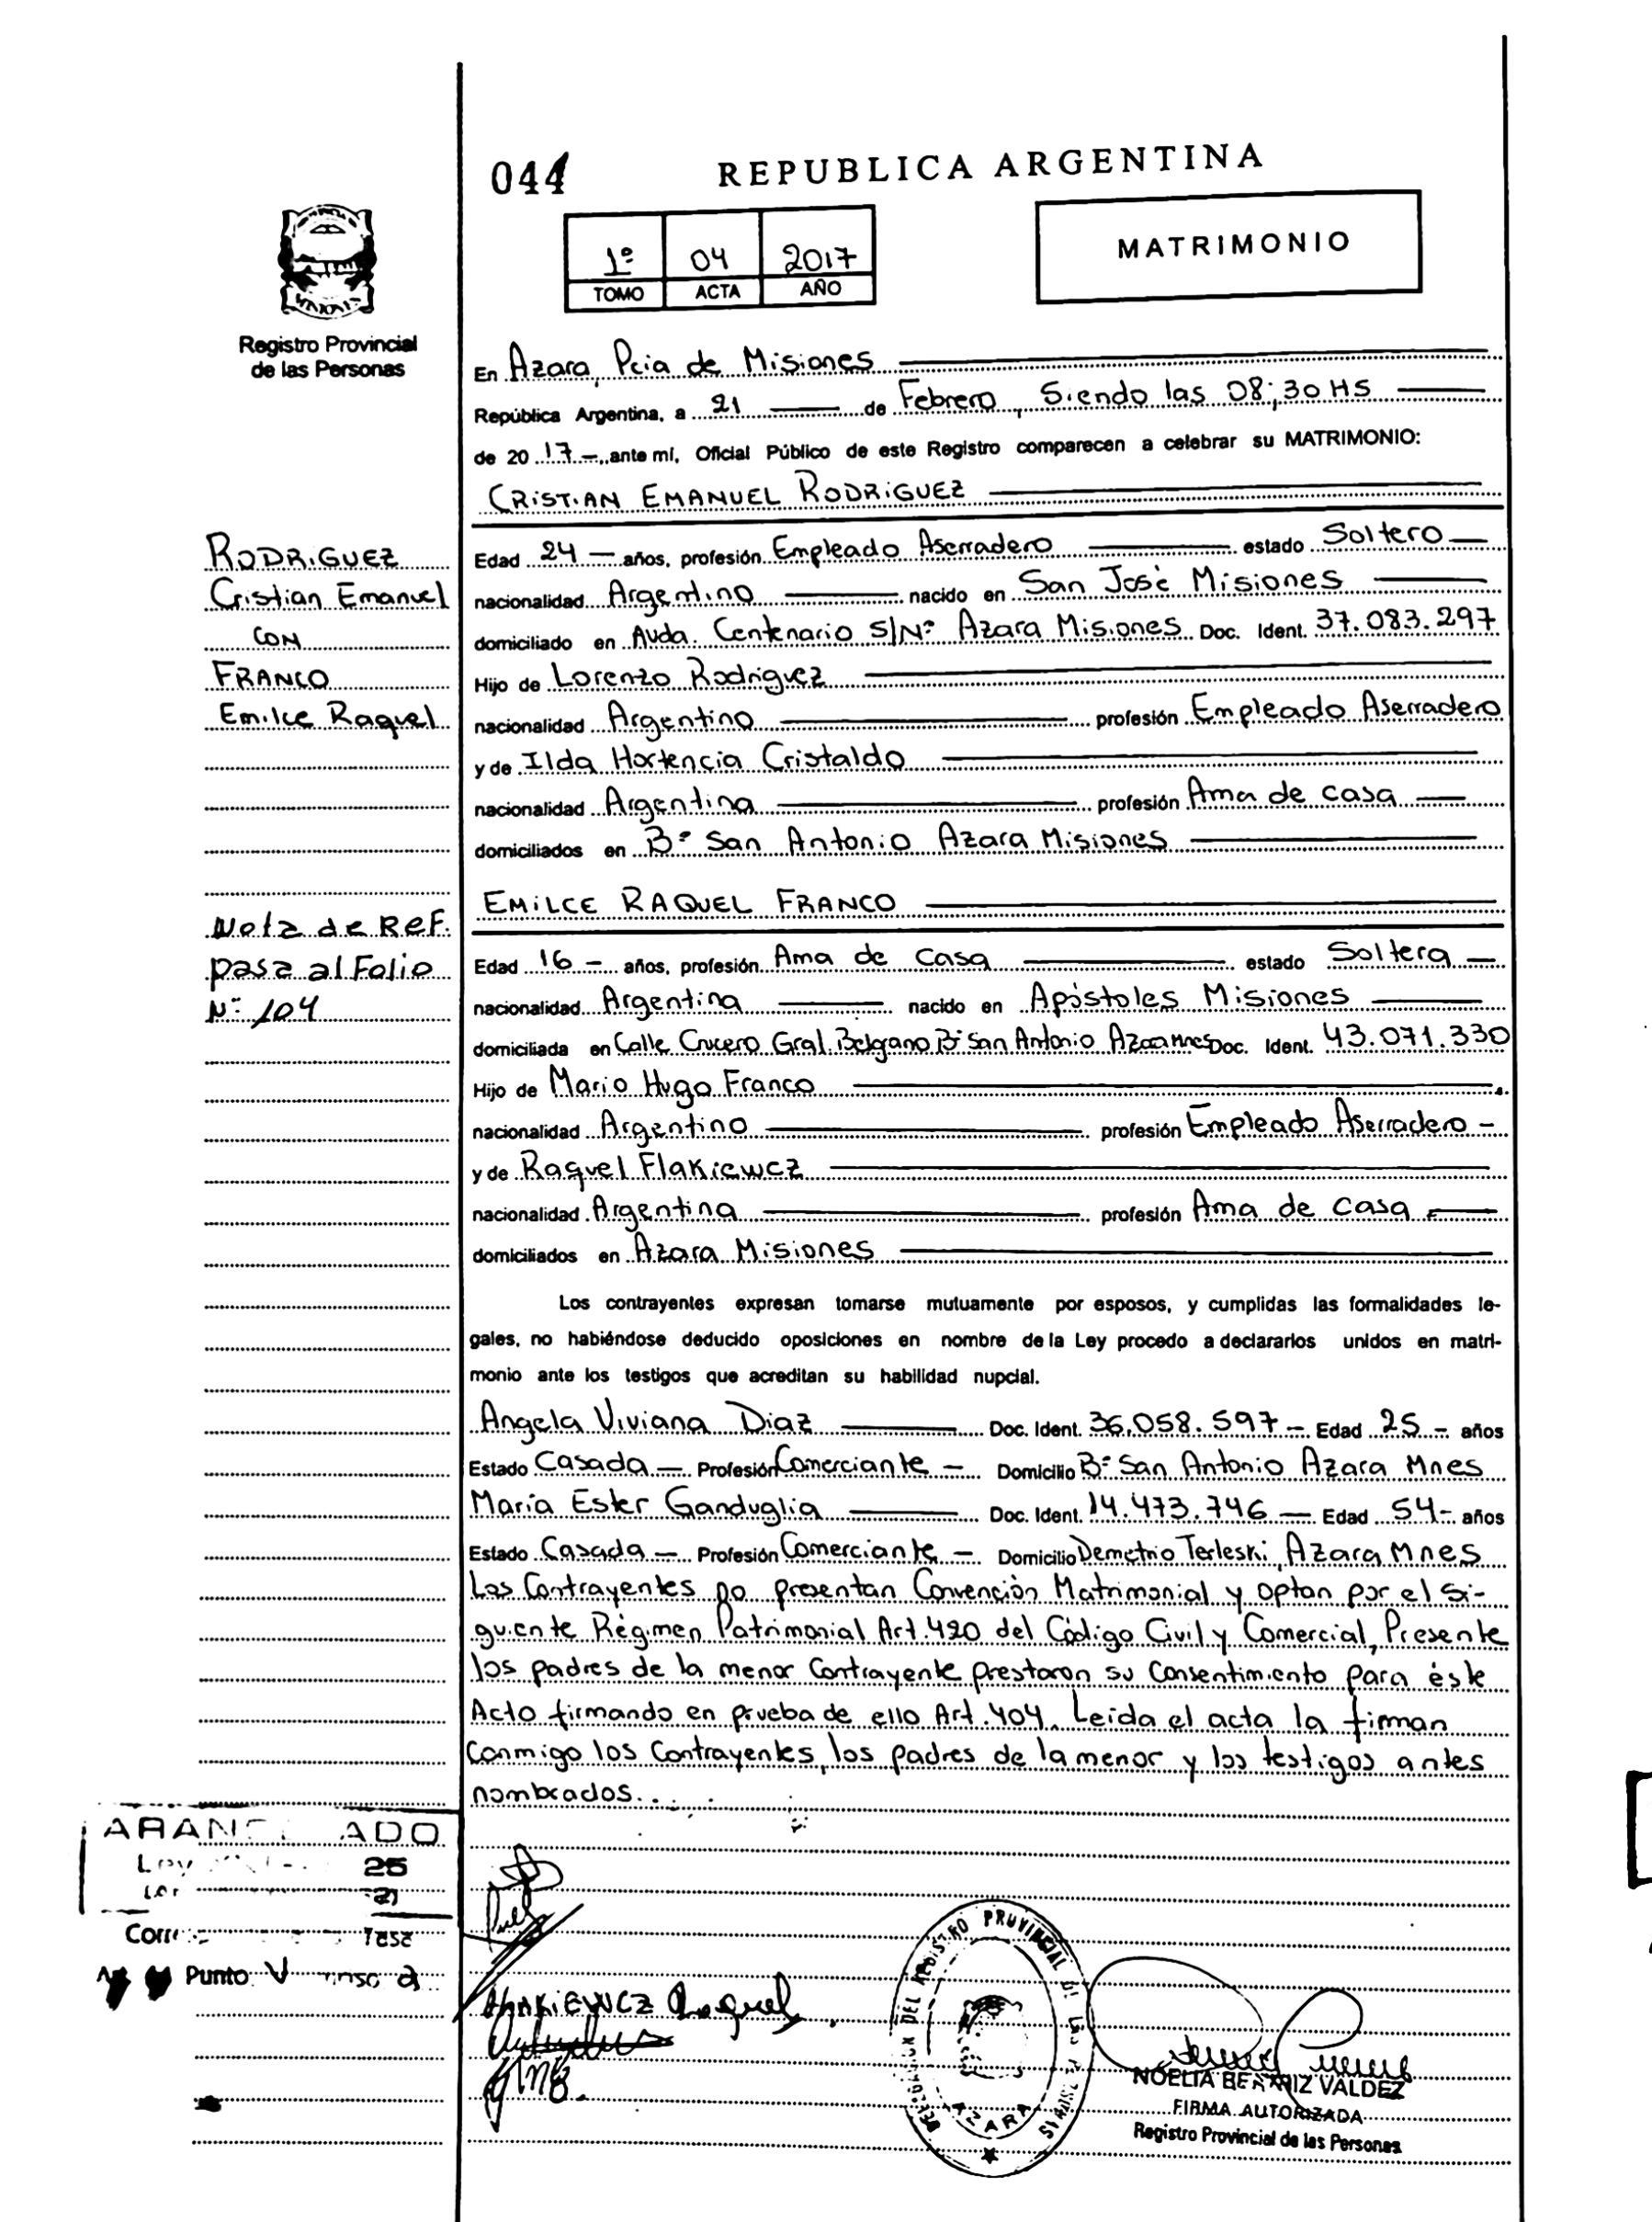 044
REPUBLICA ARGENTINA
1º 04 2017
TOMO ACTA AÑO
MATRIMONIO
Registro Provincial
de las Personas
En Azara, Pcia de Misiones
República Argentina, a 21 de Febrero, Siendo las 08;30 HS
de 2017 ante mí, Oficial Público de este Registro comparecen a celebrar su MATRIMONIO:
CRISTIAN EMANUEL RODRIGUEZ
RODRIGUEZ
Cristian Emanuel
CON
FRANCO
Emilce Raquel
Edad 24 años, profesión Empleado Aserradero estado Soltero
nacionalidad Argentino nacido en San José Misiones
domiciliado en Avda. Centenario S/Nº Azara Misiones Doc. Ident. 37.083.297
Hijo de Lorenzo Rodriguez
nacionalidad Argentino profesión Empleado Aserradero
y de Ilda Hortencia Cristaldo
nacionalidad Argentina profesión Ama de casa
domiciliados en Bº San Antonio Azara Misiones
EMILCE RAQUEL FRANCO
Nota de Ref.
pasa al Folio
Nº 104
Edad 16 años, profesión Ama de casa estado Soltera
nacionalidad Argentina nacido en Apóstoles Misiones
domiciliada en Calle Crucero Gral. Belgano Bº San Antonio Azara Mnes Doc. Ident. 43.071.330
Hijo de Mario Hugo Franco
nacionalidad Argentino profesión Empleado Aserradero
y de Raquel Flakiewcz
nacionalidad Argentina profesión Ama de casa
domiciliados en Azara Misiones
Los contrayentes expresan tomarse mutuamente por esposos, y cumplidas las formalidades le-
gales, no habiéndose deducido oposiciones en nombre de la Ley procedo a declararlos unidos en matri-
monio ante los testigos que acreditan su habilidad nupcial.
Angela Viviana Diaz Doc. Ident. 36.058.597 Edad 25 años
Estado Casada Profesión Comerciante Domicilio Bº San Antonio Azara Mnes
María Ester Ganduglia Doc. Ident. 14.473.746 Edad 54 años
Estado Casada Profesión Comerciante Domicilio Demetrio Terleski, Azara Mnes
Los Contrayentes no presentan Convención Matrimonial y optan por el si-
guiente Régimen Patrimonial Art. 420 del Código Civil y Comercial, Presente
los padres de la menor Contrayente prestaron su Consentimiento para éste
Acto firmando en prueba de ello Art. 404. Leida el acta la firman
Conmigo los Contrayentes, los padres de la menor y los testigos antes
nombrados...
Ley 25
Tasa
Punto
FLAKIEWCZ Raquel
DELEGACION DEL REGISTRO PROVINCIAL DE LAS PERSONAS
AZARA
NOELIA BEATRIZ VALDEZ
FIRMA AUTORIZADA
Registro Provincial de las Personas